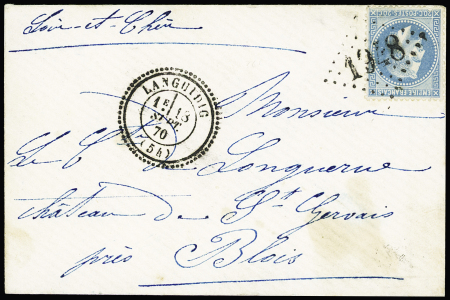 Loir-et-Cher
1928
EMPIRE FRANÇAIS
LANGUIDIC
1E 15
SEPT.
70
(54)
Monsieur
Le Cte de Longuerue
château de St Gervais
près Blois